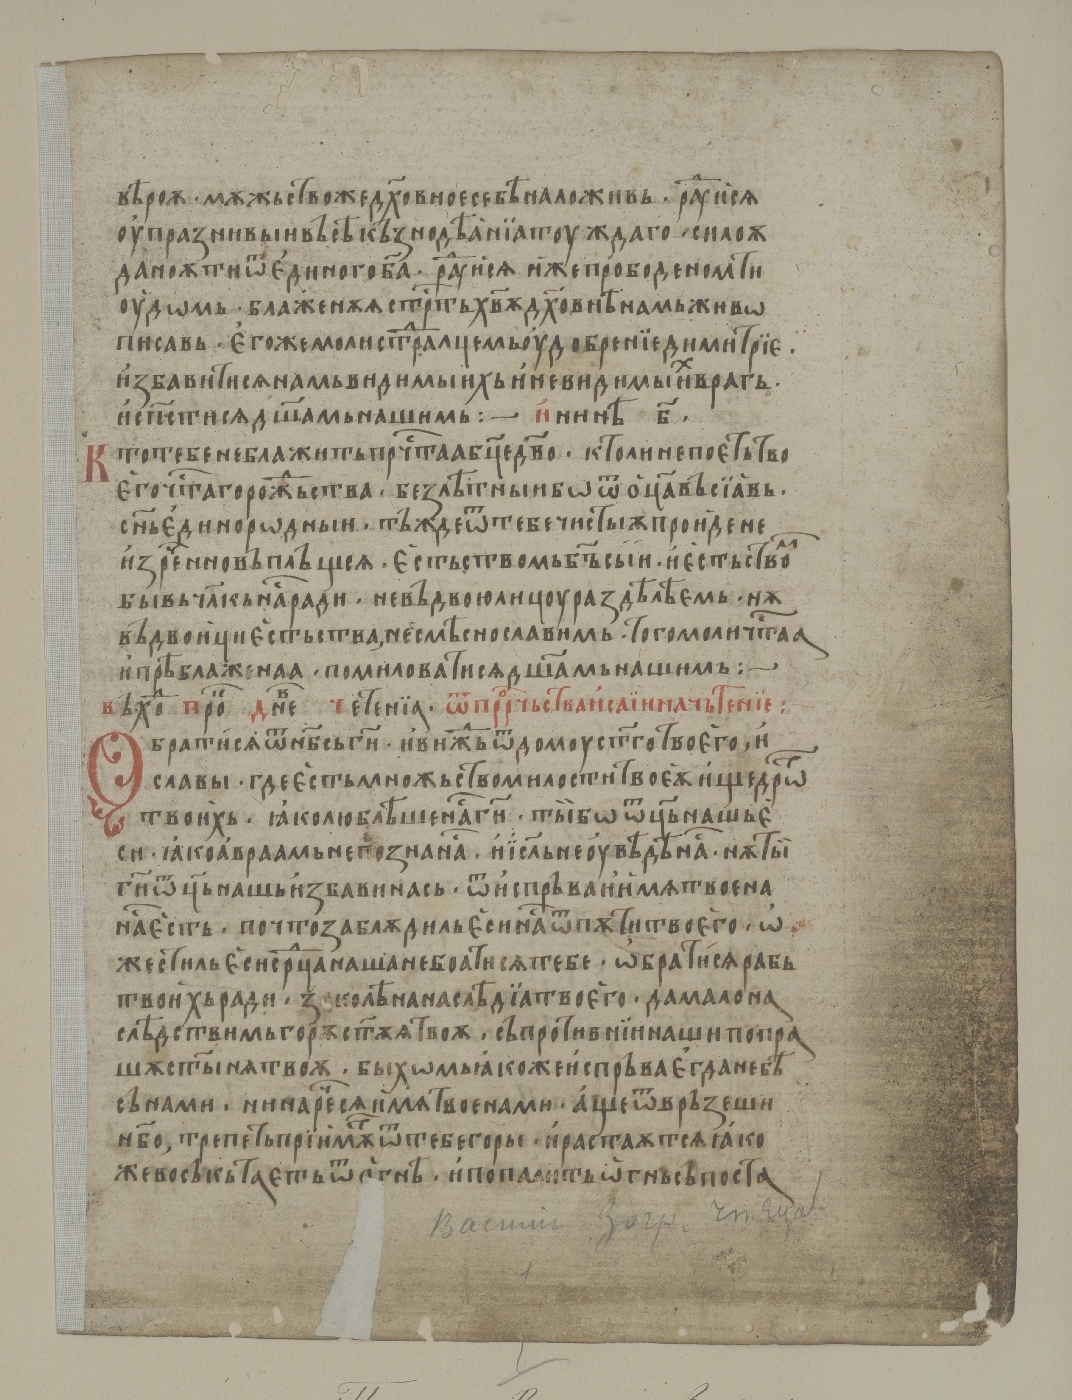 вѣроѫ · мѫжьствожедх҃овноесебѣналоживь · раⷣуисѧ
оупразнивыивъсѣкъзнодѣанїатоуждаго · силоѫ
даноѫтиѿединогоба҃ · раⷣуисѧ ижепрободеномти
оудѡмь · блаженѫѧстрⷭтьхв҃ѫдх҃овнѣнамьживѡ
писавь · егожемолистрⷭалцемьоудобренїедимитрїе ·
избавитисѧнамьвидимыихьиневидимыиⷯврагь ·
испⷭ҃тисѧдш҃амьнашимь :— инн҃ѣ б҃ ·
Ктотебенеблажитьпрⷱ҃таабц҃едв҃о · ктолинепоетьтво
егочⷭ҃тагорожⷣьства · безлѣтныибѡѿоц҃авъсїавь ·
сн҃ьединорѡдныи · тъждеѿтебечистыѫпроиденe
изреⷱ҃нновъплъщсѧ · естьствомьбъ҃сыи · иестьствоⷨ
бывьчл҃кьнаⷭ҃ради · невъдвоюлицоураздѣлѣемь · нѫ
въдвоицⷩ҃естьства,несмѣснославимь · тогомоличⷭ҃таа
ипрѣблаженаа · помиловатисѧдш҃амьнашимь :—
въхоⷣ проⷦ҇ днⷡ҇е чтенїа · ѿпррⷪ҇чьстваисаїиначьтенїе :
Обратисѧѿнб҃сьги҃ · ивижⷣьѿдомоуст҃готвоего , и
славы · гдеестьмножьствомилоститвоеѫищедрѿ
твоихь · ꙗколюблѣшенаⷭ҇ги҃ · тыибѡѿц҃ьнашье
си · ꙗкоавраамьнепознанаⷭ҇ · иїсл҃ьнеоувѣдѣнаⷭ҇ · нѫты
ги҃ѿц҃ьнашьизбавинась · ѿиспръваиимѧтвоена
наⷭ҇есть · почтозаблѫдильесинаⷭ҇ѿпѫтитвоего · ѡ
жестилъесисрⷣ҇цанашанебоатисѧтебе · ѡбратисѧрабь
твоихьради · колѣнанаслѣдїатвоего · дамалона
слѣдствимьгорѫст҃ѫѧтвоѫ · съпротивнїинашипопра
шѫст҃ынѧтвоѫ · быхѡмьꙗкожеиспръваегданебѣ
сънами · нинареⷱ҇сѧимѧтвоенами · ащеѿвръзеши
нб҃о, трепетьпрїимѫⷮѿтебегоры · ирастаѫтсѧꙗко
жевоськьтаетьѿогнѣ · ипопалитьѡгньсъпоста